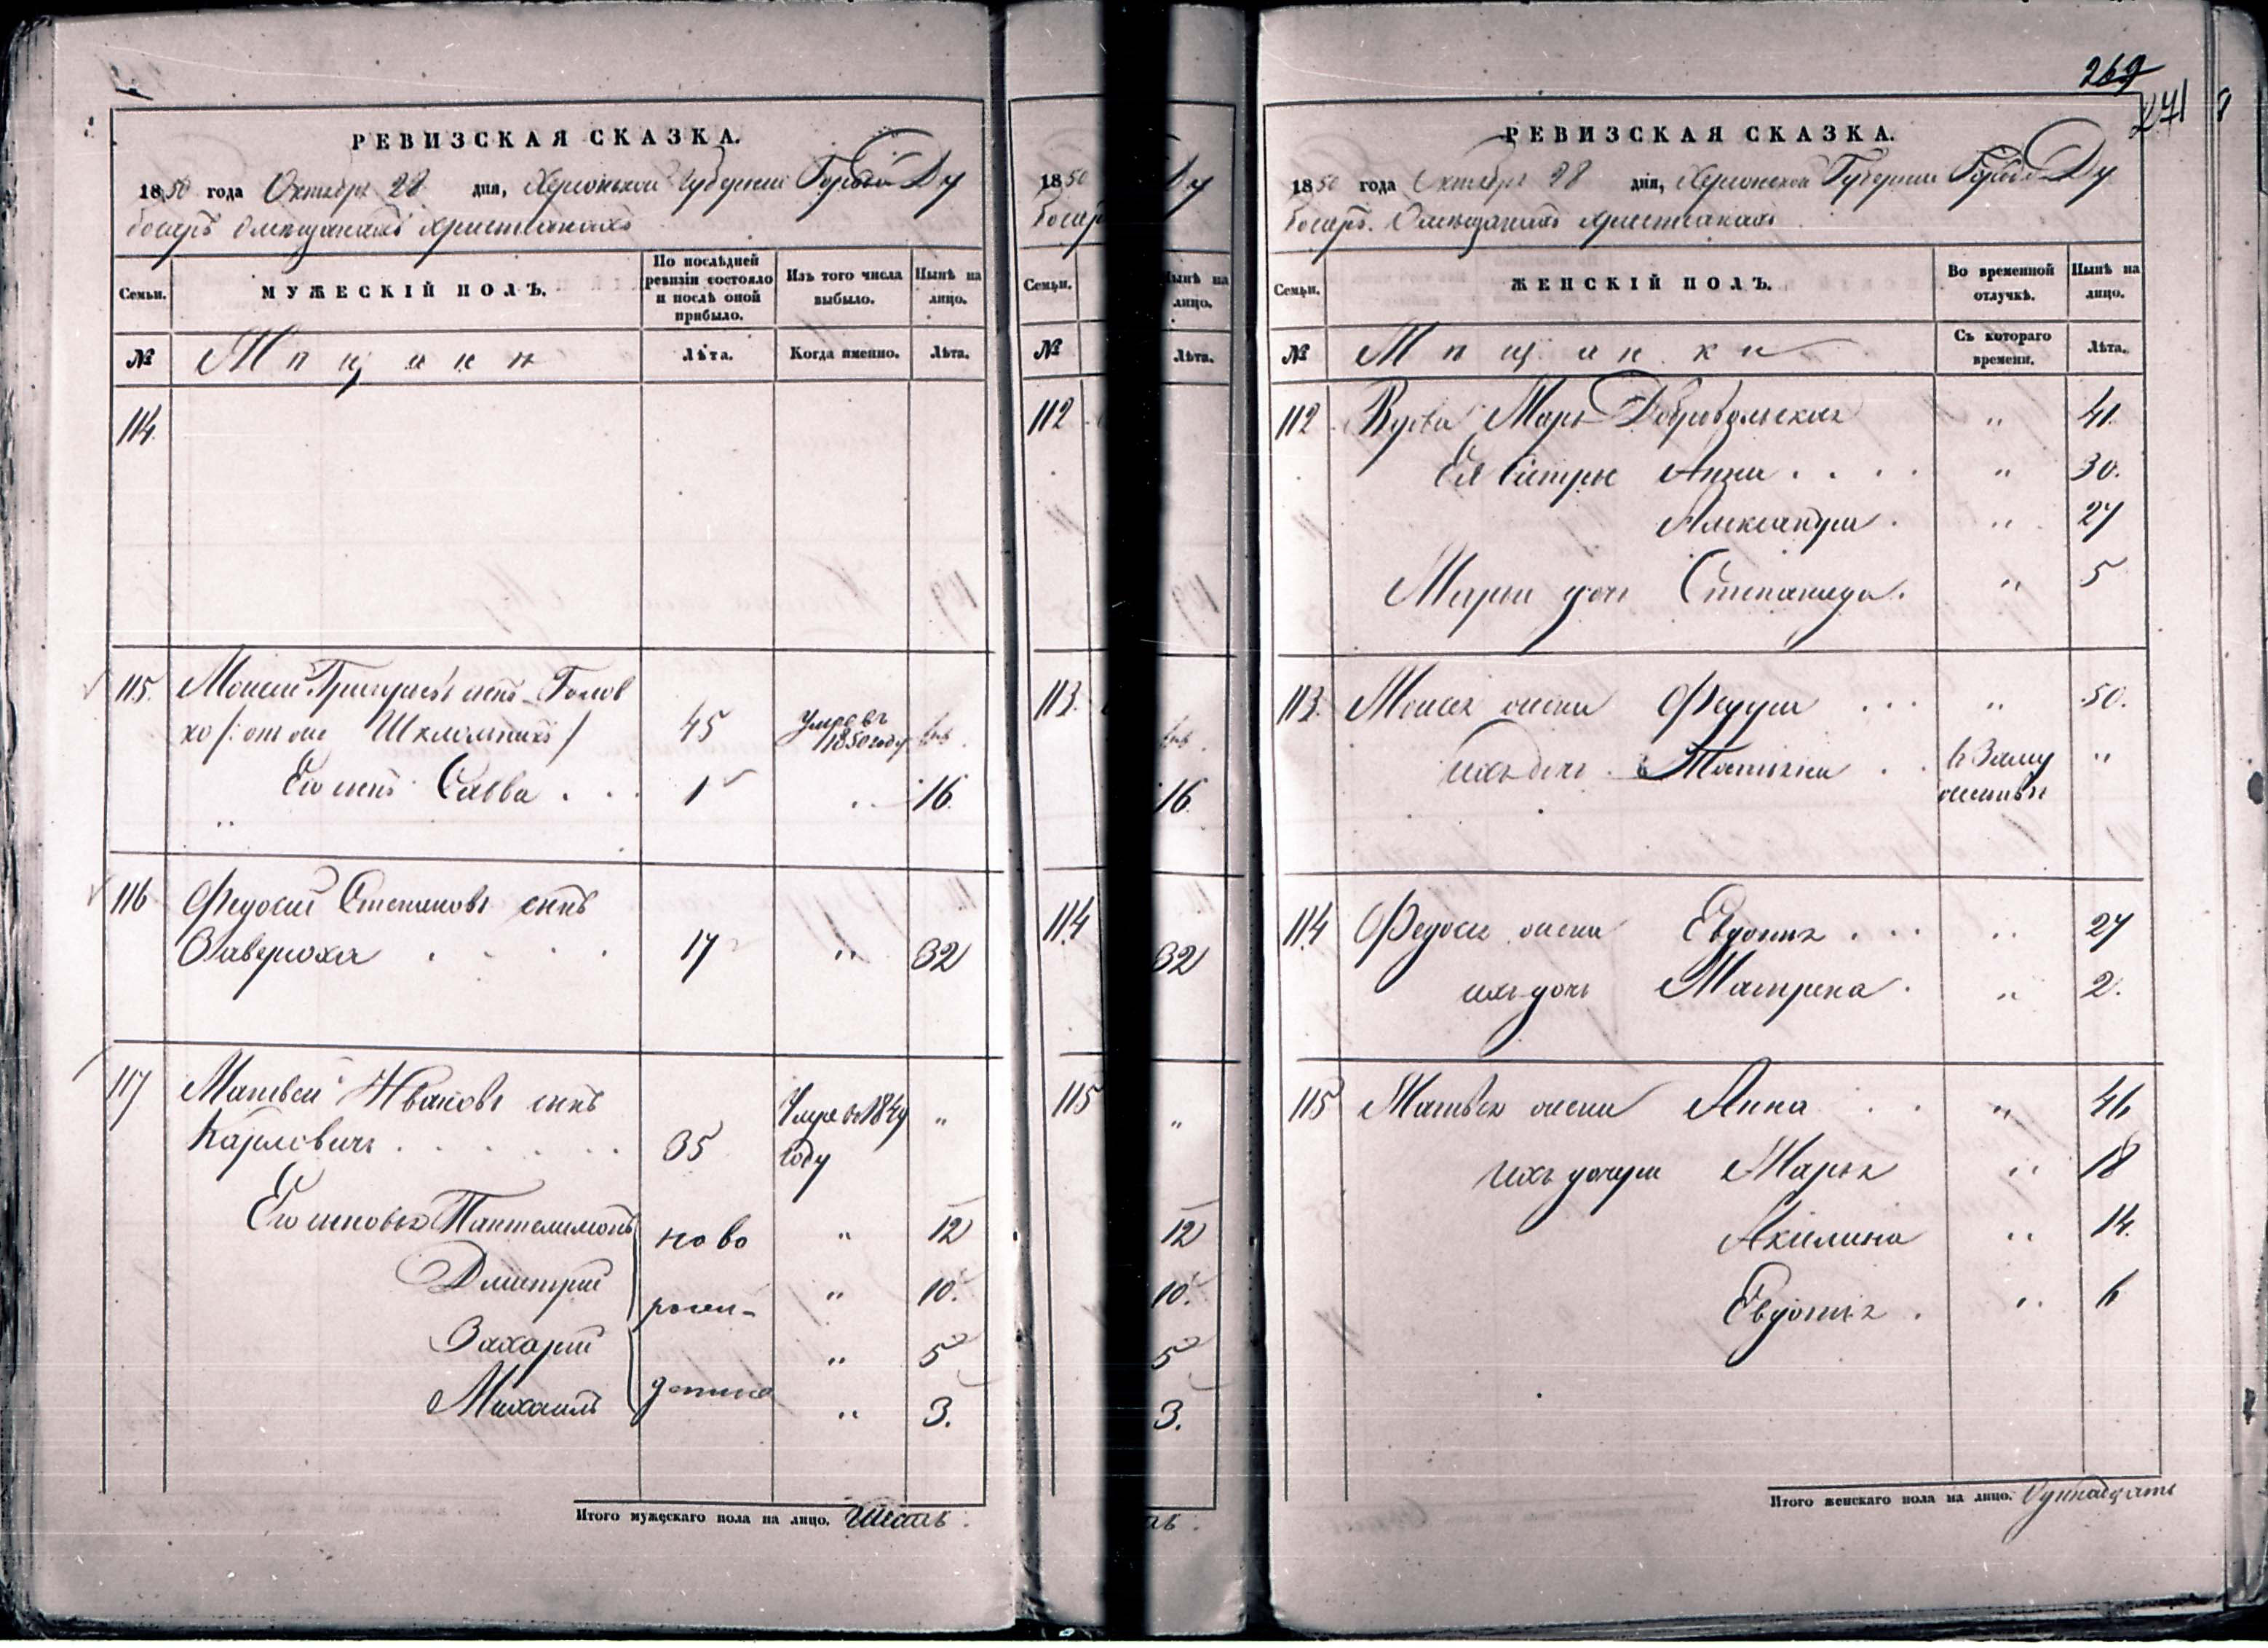 РЕВИЗСКАЯ СКАЗКА.
1850 года Октября 28 дня, Херсонской Губернии Города Ду
босаръ О мещанахъ христіанахъ
Семьи. МУЖЕСКІЙ ПОЛЪ. По послѣдней ревизіи состояло и послѣ оной прибыло. Изъ того числа выбыло. Нынѣ на лицо.
№ Мещане Лѣта. Когда именно. Лѣта.
114
115. Моисей Григорьевъ сынъ Голов
ко /: онъ же Шкломникъ / 45 Умре въ 1850 году
Его сынъ Савва . . . 1 " 16.
"
116 Федосій Степановъ сынъ
Заверюха . . . . 17 " 32
117 Матвей Ивановъ сынъ
Карповичъ . . . . . 35 Умре в 1849 году "
Его сыновья Пантелимонъ ново " 12
Дмитрій рожи- " 10.
Захарій " 5
Михаилъ денные " 3.
Итого мужескаго пола на лицо. Шесть.
1850
босар
Семьи.
№
112
113.
114
115
Ду
Нынѣ на лицо.
Лѣта.
16.
32
"
12
10.
5
3.
ть.
269
271
РЕВИЗСКАЯ СКАЗКА.
1850 года Октября 28 дня, Херсонской Губернии Города Ду
босаръ. О мещанахъ христіанахъ
Семьи. ЖЕНСКІЙ ПОЛЪ. Во временной отлучкѣ. Нынѣ на лицо.
№ Мещанки Съ котораго времени. Лѣта.
112 Вдова Марья Добровольская " 41.
Ея сестры Анна . . . . " 30.
Александра . " 27
Марьи дочь Степанида . " 5
113. Моисея жена Федора . . . " 50.
ихъ дочь Татьяна . . в Заму жествѣ "
114 Федосія жена Евдокія . . . " 27
ихъ дочь Матрена . " 2.
115 Матвѣя жена Анна . . " 46
ихъ дочери Марья " 18
Акилина " 14.
Евдокія . " 6
Итого женскаго пола на лицо. Одинадцать